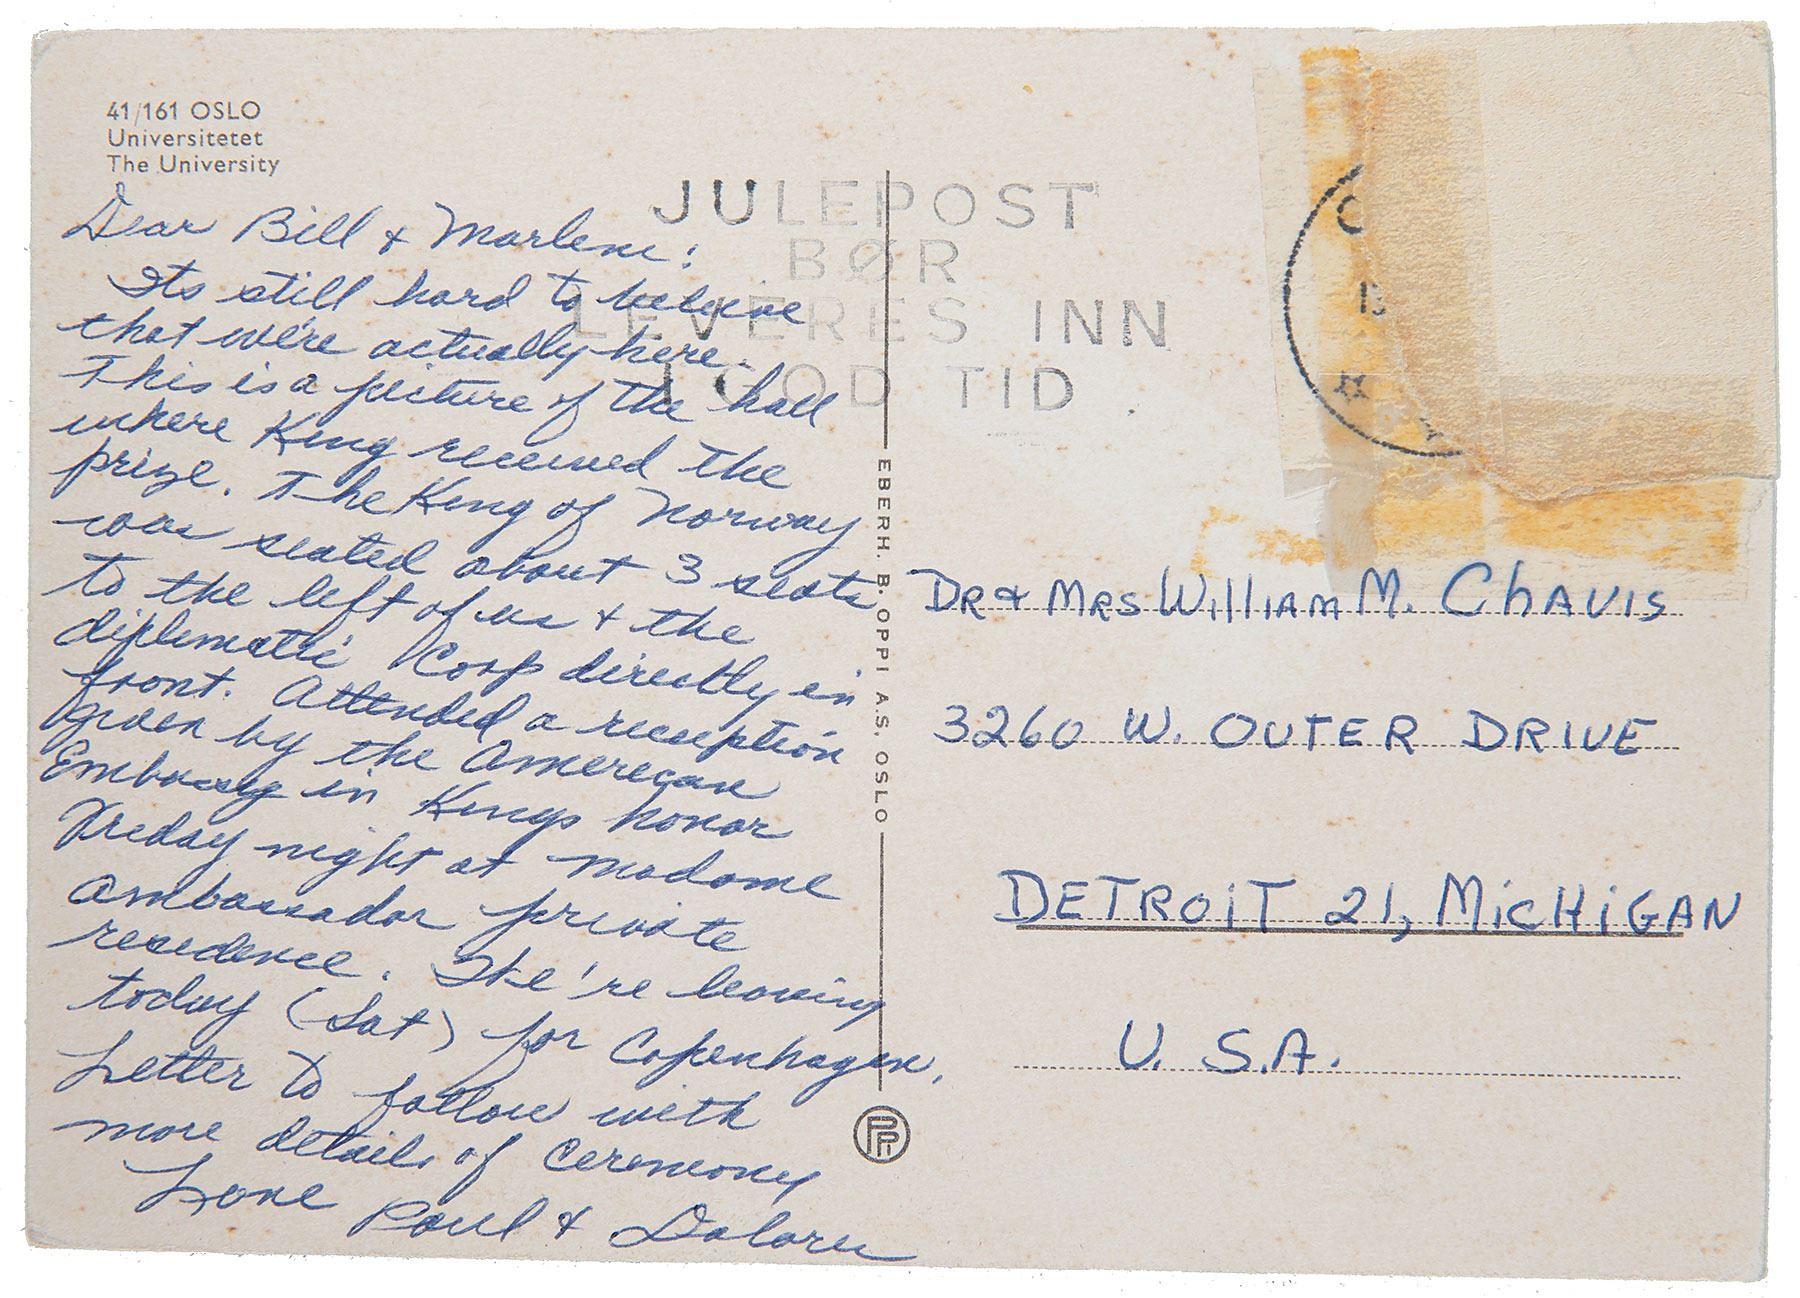 41/161 OSLO
Universitetet
The University
Dear Bill & Marlene:
Its still hard to beleive
that we're actually here.
This is a picture of the hall
where King received the
prize. The King of Norway
was seated about 3 seats
to the left of us & the
diplomatic Corp directly in
front. Attended a reception
given by the American
Embassy in Kings honor
Friday night at Madame
Ambassador private
residence. We're leaving
today (Sat) for Copenhagen,
Letter to follow with
more details of ceremony
Love Paul & Dolores
JULEPOST
BØR
LEVERES INN
I GOD TID
EBERH. B. OPPI A.S. OSLO
DR & MRS WILLIAM M. CHAVIS
3260 W. OUTER DRIVE
DETROIT 21, MICHIGAN
U. S.A.